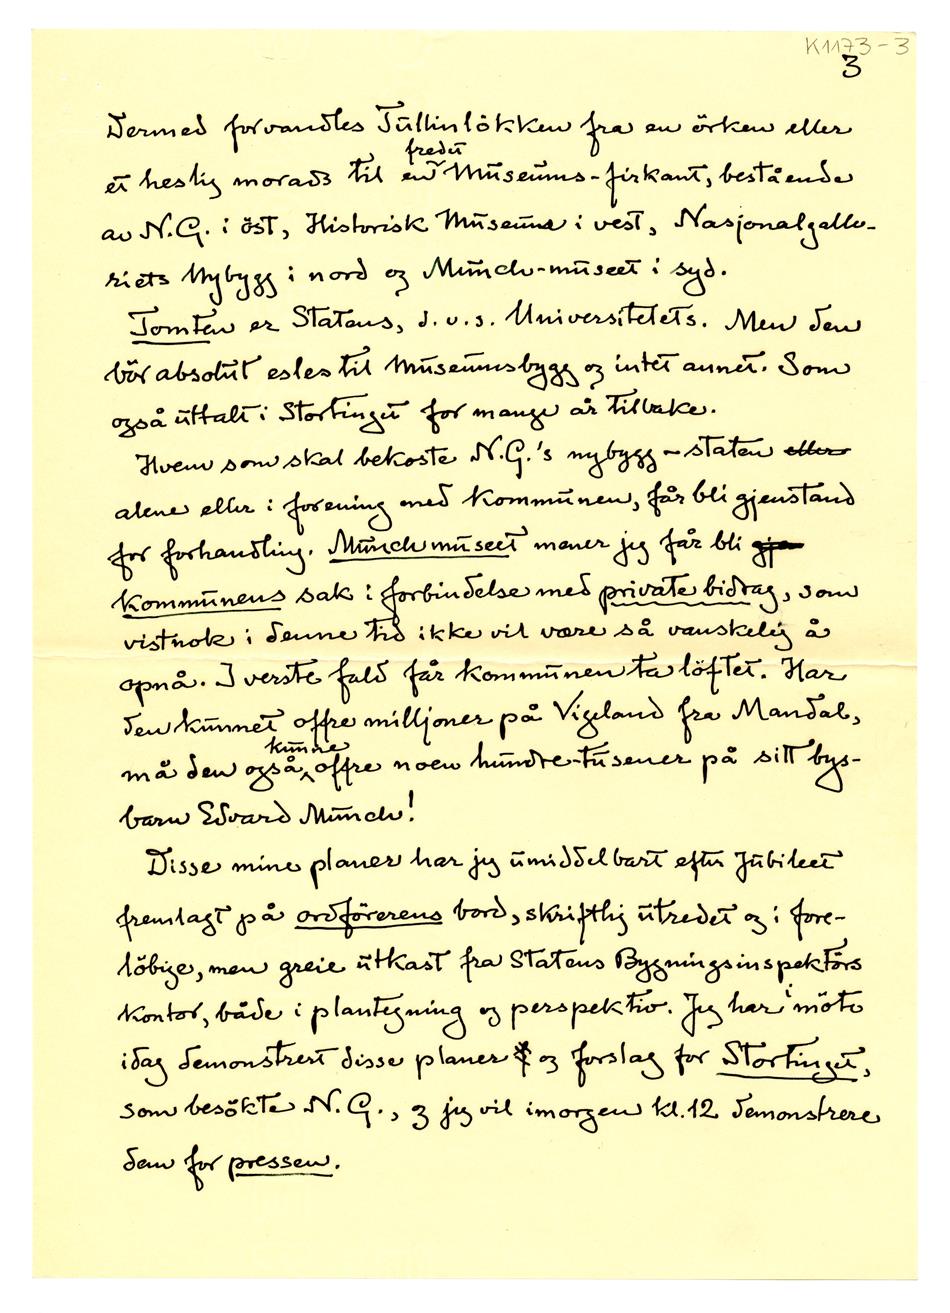 K1173-3
3
Dermed forvandles Tullinlökken fra en örken eller
et heslig morads til en fredet Museums-firkant, bestående
av N.G. i öst, Historisk Museum i vest, Nasjonalgalle-
riets Nybygg i nord og Munch-museet i syd.
Tomten er Statens, d.v.s. Universitetets. Men den
bör absolut esles til Museumsbygg og intet annet. Som
også uttalt i Stortinget for mange år tilbake.
Hvem som skal bekoste N.G.'s nybygg – staten eller
alene eller i forening med kommunen, får bli gjenstand
for forhandling. Munchmuseet mener jeg får bli gje
kommunens sak i forbindelse med private bidrag, som
vistnok i denne tid ikke vil være så vanskelig å
opnå. I verste fald får kommunen ta löftet. Har
den kunnet offre milljoner på Vigeland fra Mandal,
må den også kunne offre noen hundre-tusener på sitt bys-
barn Edvard Munch!
Disse mine planer har jeg umiddelbart efter Jubileet
fremlagt på ordförerens bord, skriftlig utredet og i fore-
löbige, men greie utkast fra Statens Bygningsinspektörs
kontor, både i plantegning og perspektiv. Jeg har i möte
idag demonstrert disse planer og forslag for Stortinget,
som besökte N.G., og jeg vil imorgen kl. 12 demonstrere
dem for pressen.